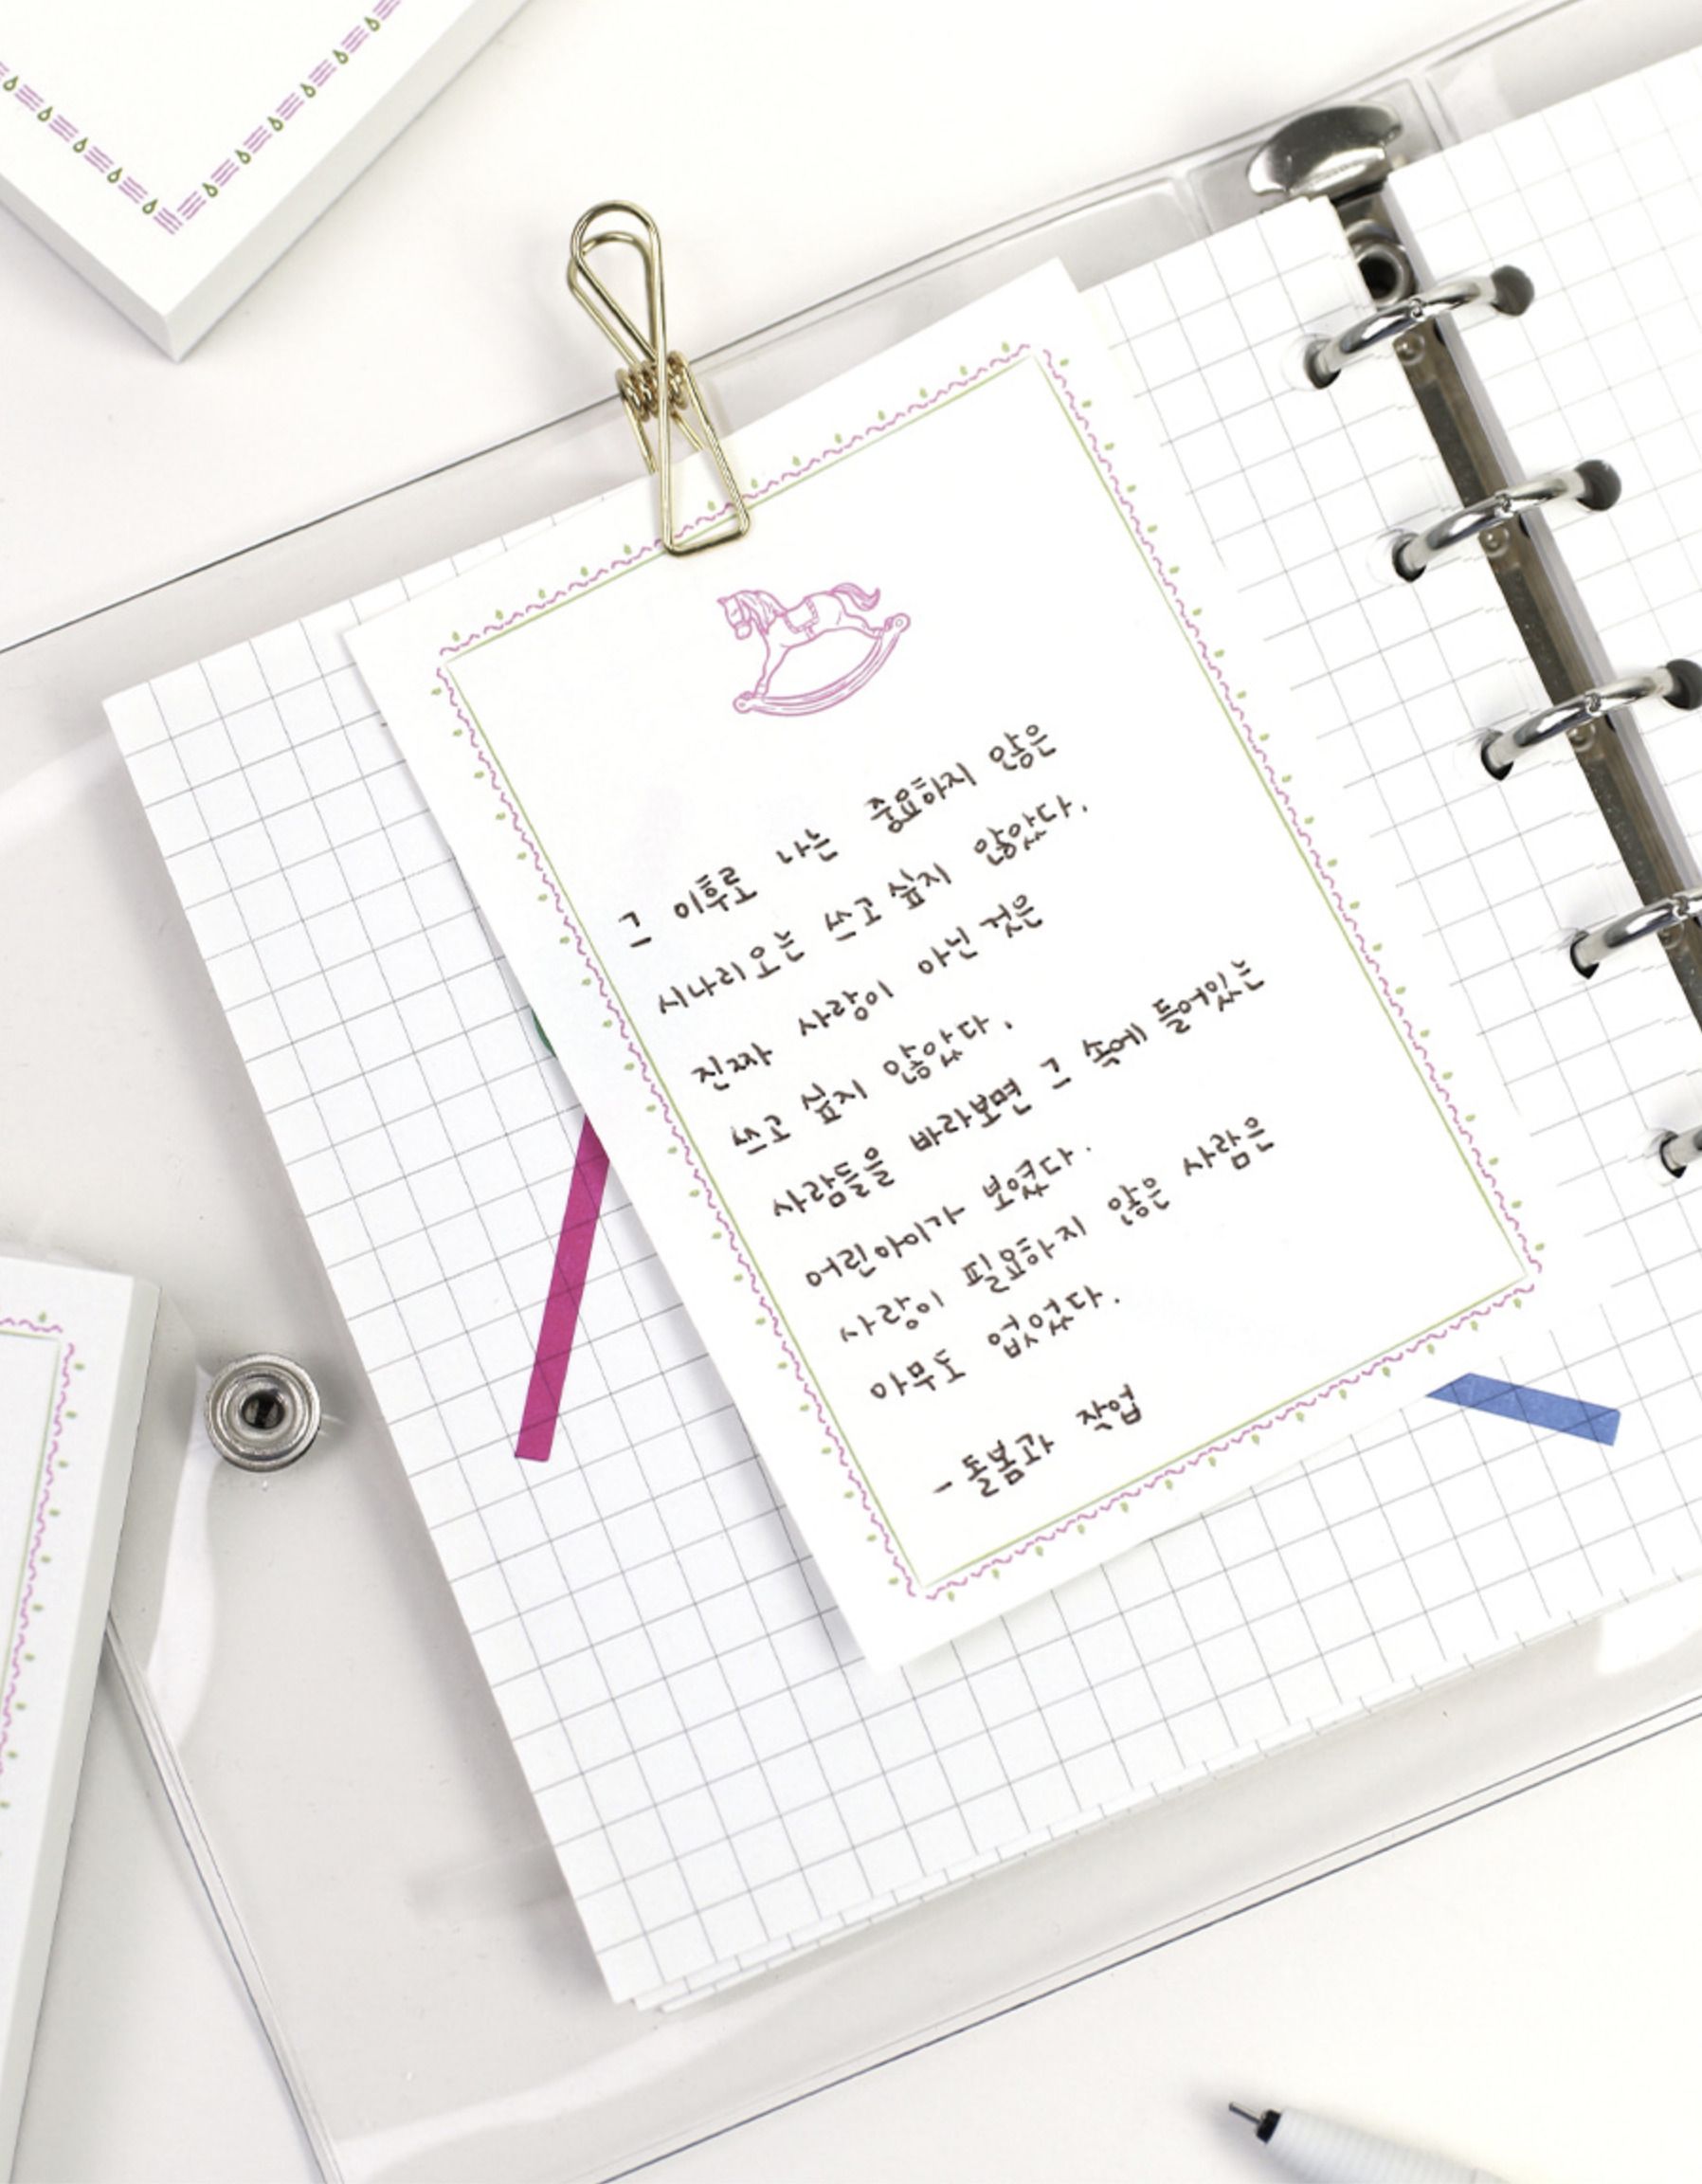 그 이후로 나는 중요하지 않은
시나리오는 쓰고 싶지 않았다.
진짜 사랑이 아닌 것은
쓰고 싶지 않았다.
사람들을 바라보면 그 속에 들어있는
어린아이가 보였다.
사랑이 필요하지 않은 사람은
아무도 없었다.
- 돌봄과 작업